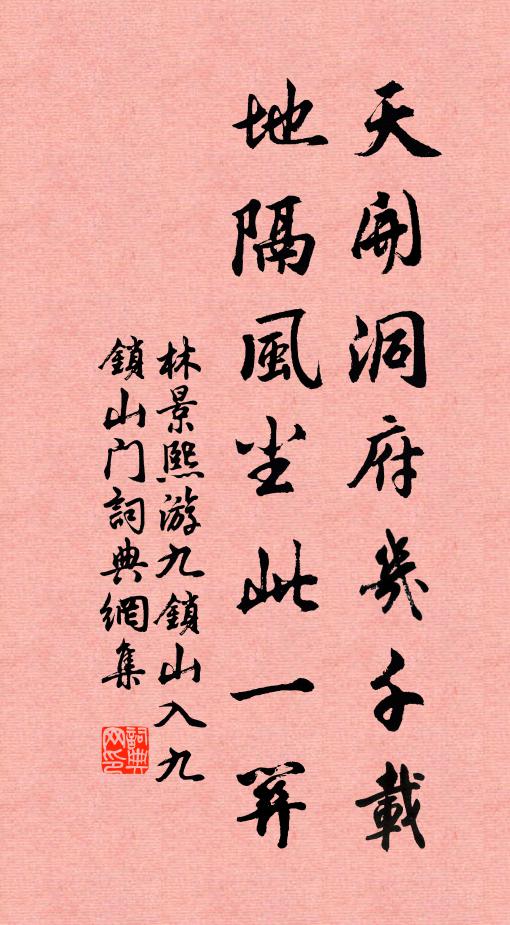 天開洞府幾千載
地隔風塵此一關
林景熙游九鎖山入九
鎖山门詞典網集
詞典
网印